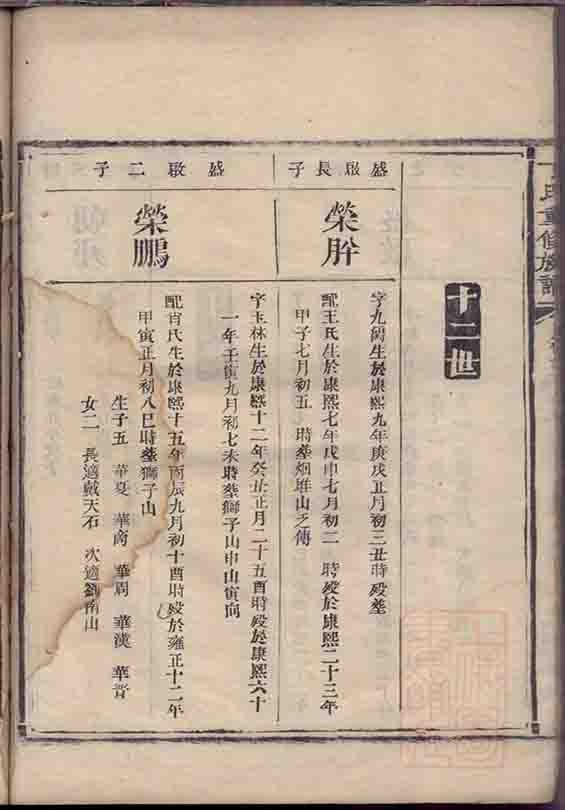 氏重修族譜
十二世
盛啟長子
榮肸
字九閣生於康熙九年庚戌正月初三丑時歿葬
配王氏生於康熙七年戊申七月初二 時歿於康熙二十三年
甲子七月初五 時葬烟堆山之傍
盛啟二子
榮鵬
字玉林生於康熙十二年癸丑正月二十五酉時歿於康熙六十
一年壬寅九月初七未時葬獅子山申山寅向
配肖氏生於康熙十五年丙辰九月初十酉時歿於雍正十二年
甲寅正月初八巳時葬獅子山
生子五 華夏 華商 華周 華漢 華晋
女二 長適戴天石 次適劉南山